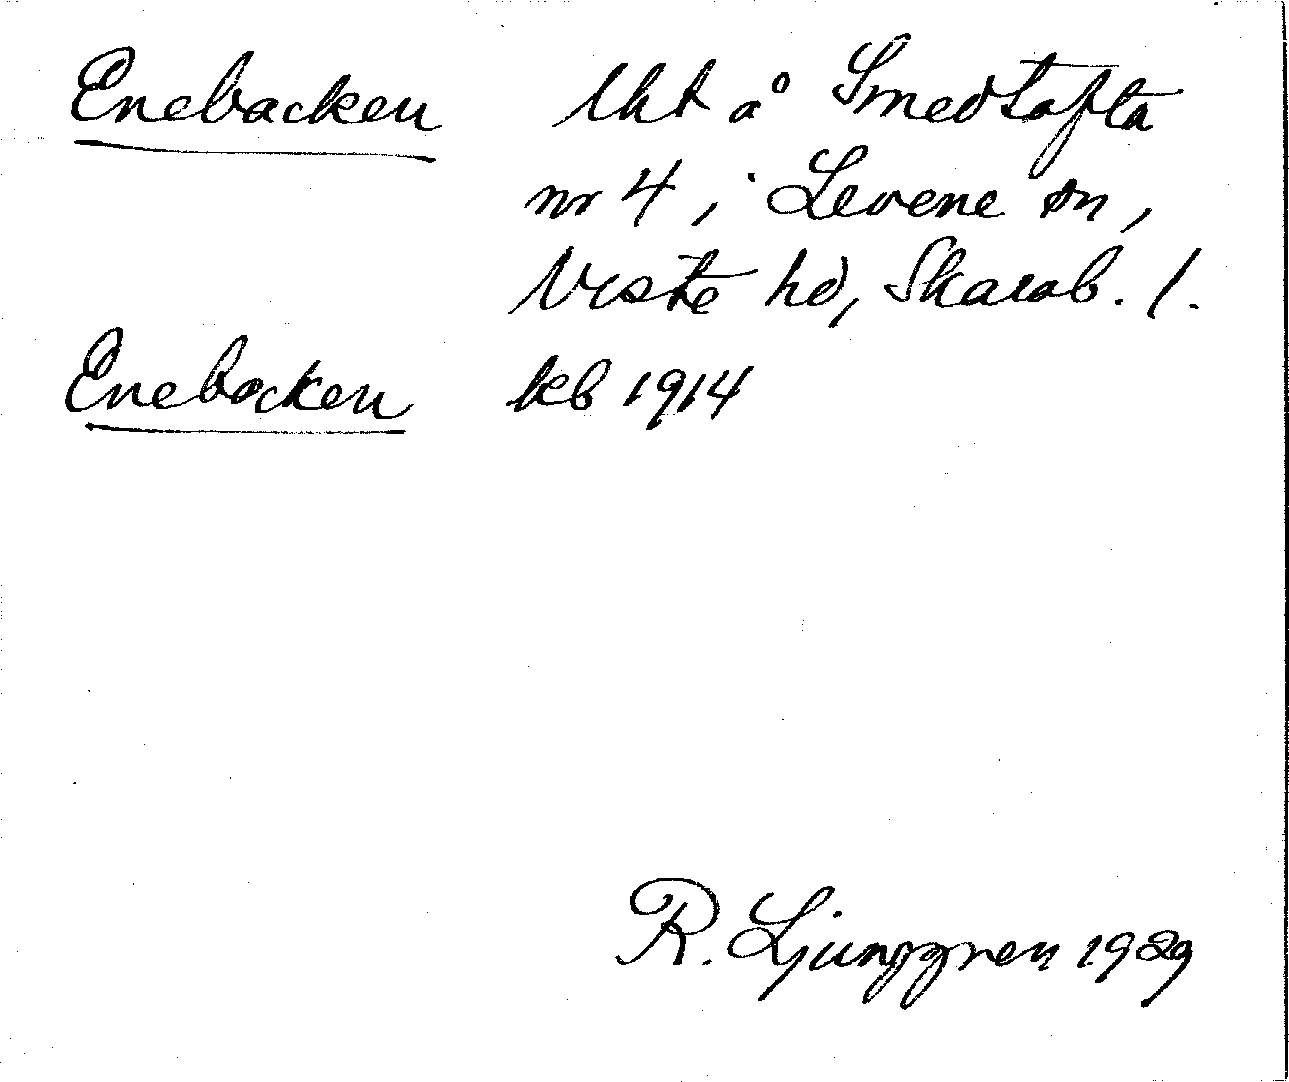 Enebacken lht å Smedtofta
nr 4, i Levene sn,
Viste hd, Skarab. l.
Enebacken kb 1914
R. Ljunggren 1929